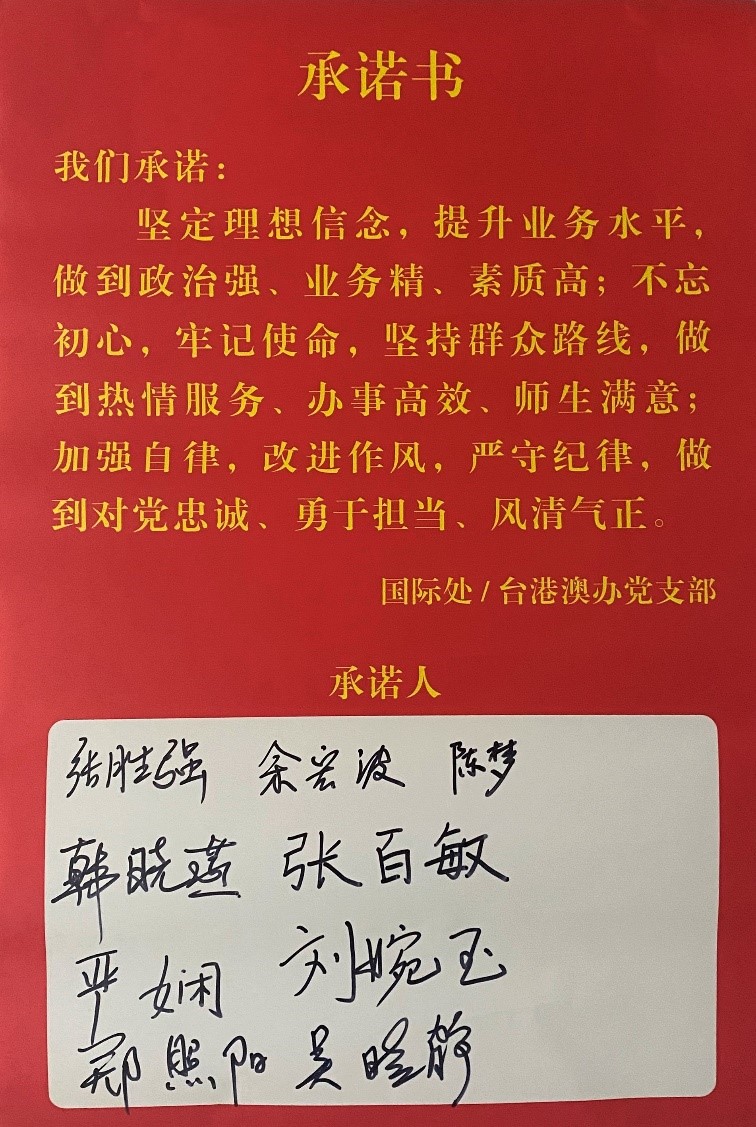 承诺书
我们承诺：
坚定理想信念，提升业务水平，
做到政治强、业务精、素质高；不忘
初心，牢记使命，坚持群众路线，做
到热情服务、办事高效、师生满意；
加强自律，改进作风，严守纪律，做
到对党忠诚、勇于担当、风清气正。
国际处/台港澳办党支部
承诺人
张胜强 余宏波 陈梦
韩晓燕 张百敏
严娴 刘婉玉
郑照阳 吴晗静